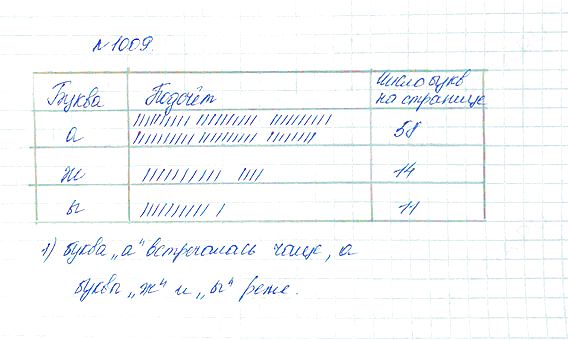 №1009.
Буква Подсчёт Число букв на странице
а ////////// ////////// ////////// ////////// ////////// //////// 58
ж ////////// //// 14
ы ////////// / 11
1) буква „а“ встречалась чаще, а
буквы „ж“ и „ы“ реже.